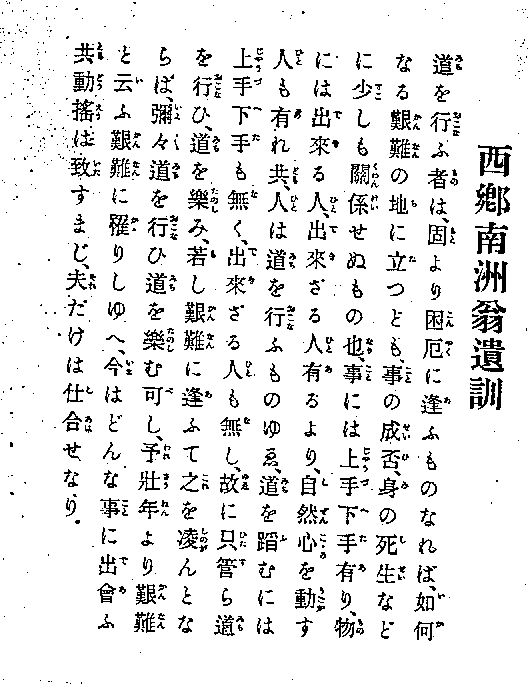 西鄕南洲翁遺訓
道を行ふ者は、固より困厄に逢ふものなれば、如何
なる艱難の地に立つとも、事の成否、身の死生など
に少しも關係せぬもの也、事には上手下手有り、物
には出來る人、出來ざる人有るより、自然心を動す
人も有れ共、人は道を行ふものゆゑ、道を蹈むには
上手下手も無く、出來ざる人も無し、故に只管ら道
を行ひ、道を樂み、若し艱難に逢ふて之を凌んとな
らば、彌々道を行ひ道を樂む可し、予壯年より艱難
と云ふ艱難に罹りしゆへ、今はどんな事に出會ふ
共動搖は致すまじ、夫だけは仕合せなり.